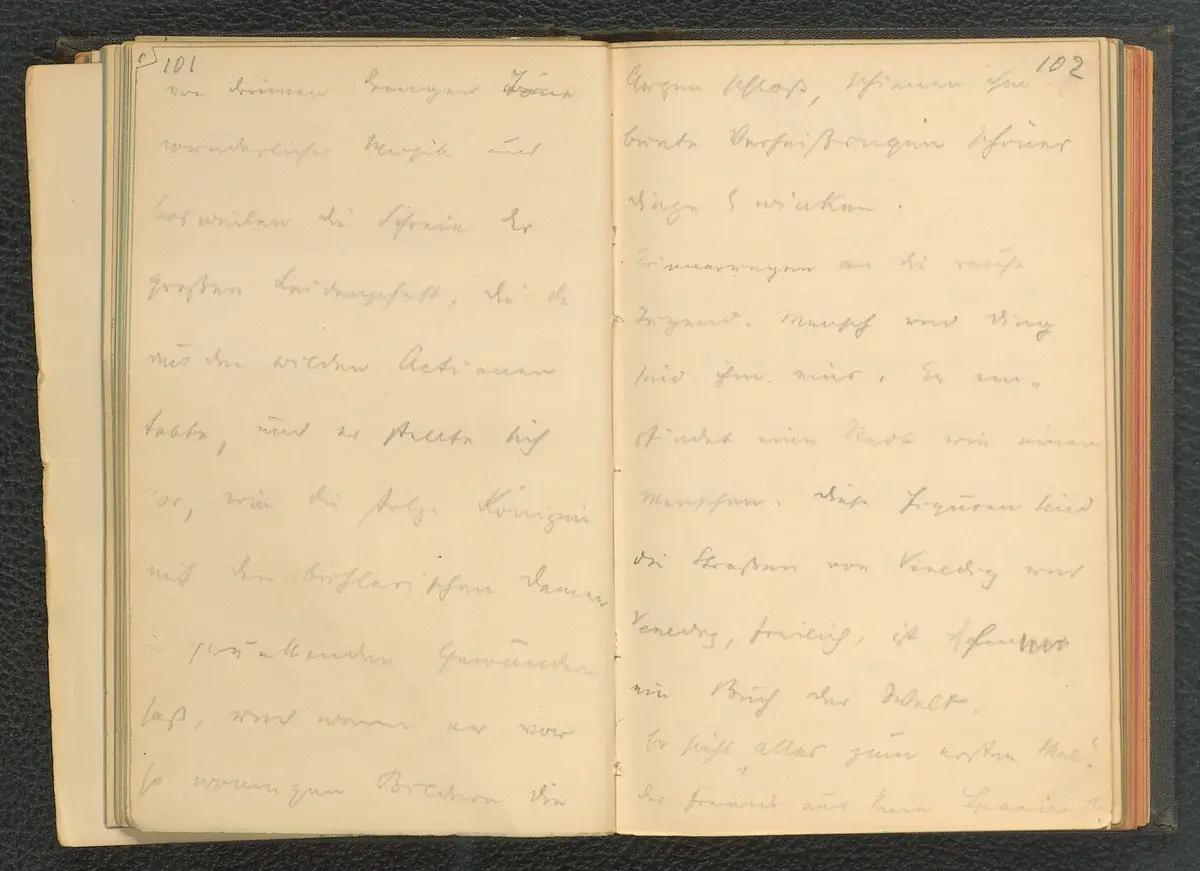 101
von drinnen drangen Töne
wunderlicher Musik und
bisweilen die Schreie der
großen Leidenschaft, die da
aus den wilden Actionen
tobte, und er stellte sich
vor, wie die stolze Königin
mit den buhlerischen Damen
in prunkenden Gewändern
saß, und wenn er vor
so wonnigen Bildern die
102
Augen schloß, schienen ihm
bunte Verheißungen schöner
Dinge zu winken.
Erinnerungen an die
Jugend. Mensch und Ding
sind ihm eins. Er em-
pfindet eine Stadt wie einen
Menschen. Diese Figuren sind
die Straßen von Venedig und
Venedig, freilich, ist
ein Buch der Welt.
Er sieht alles zum ersten Mal.
der Fremde aus